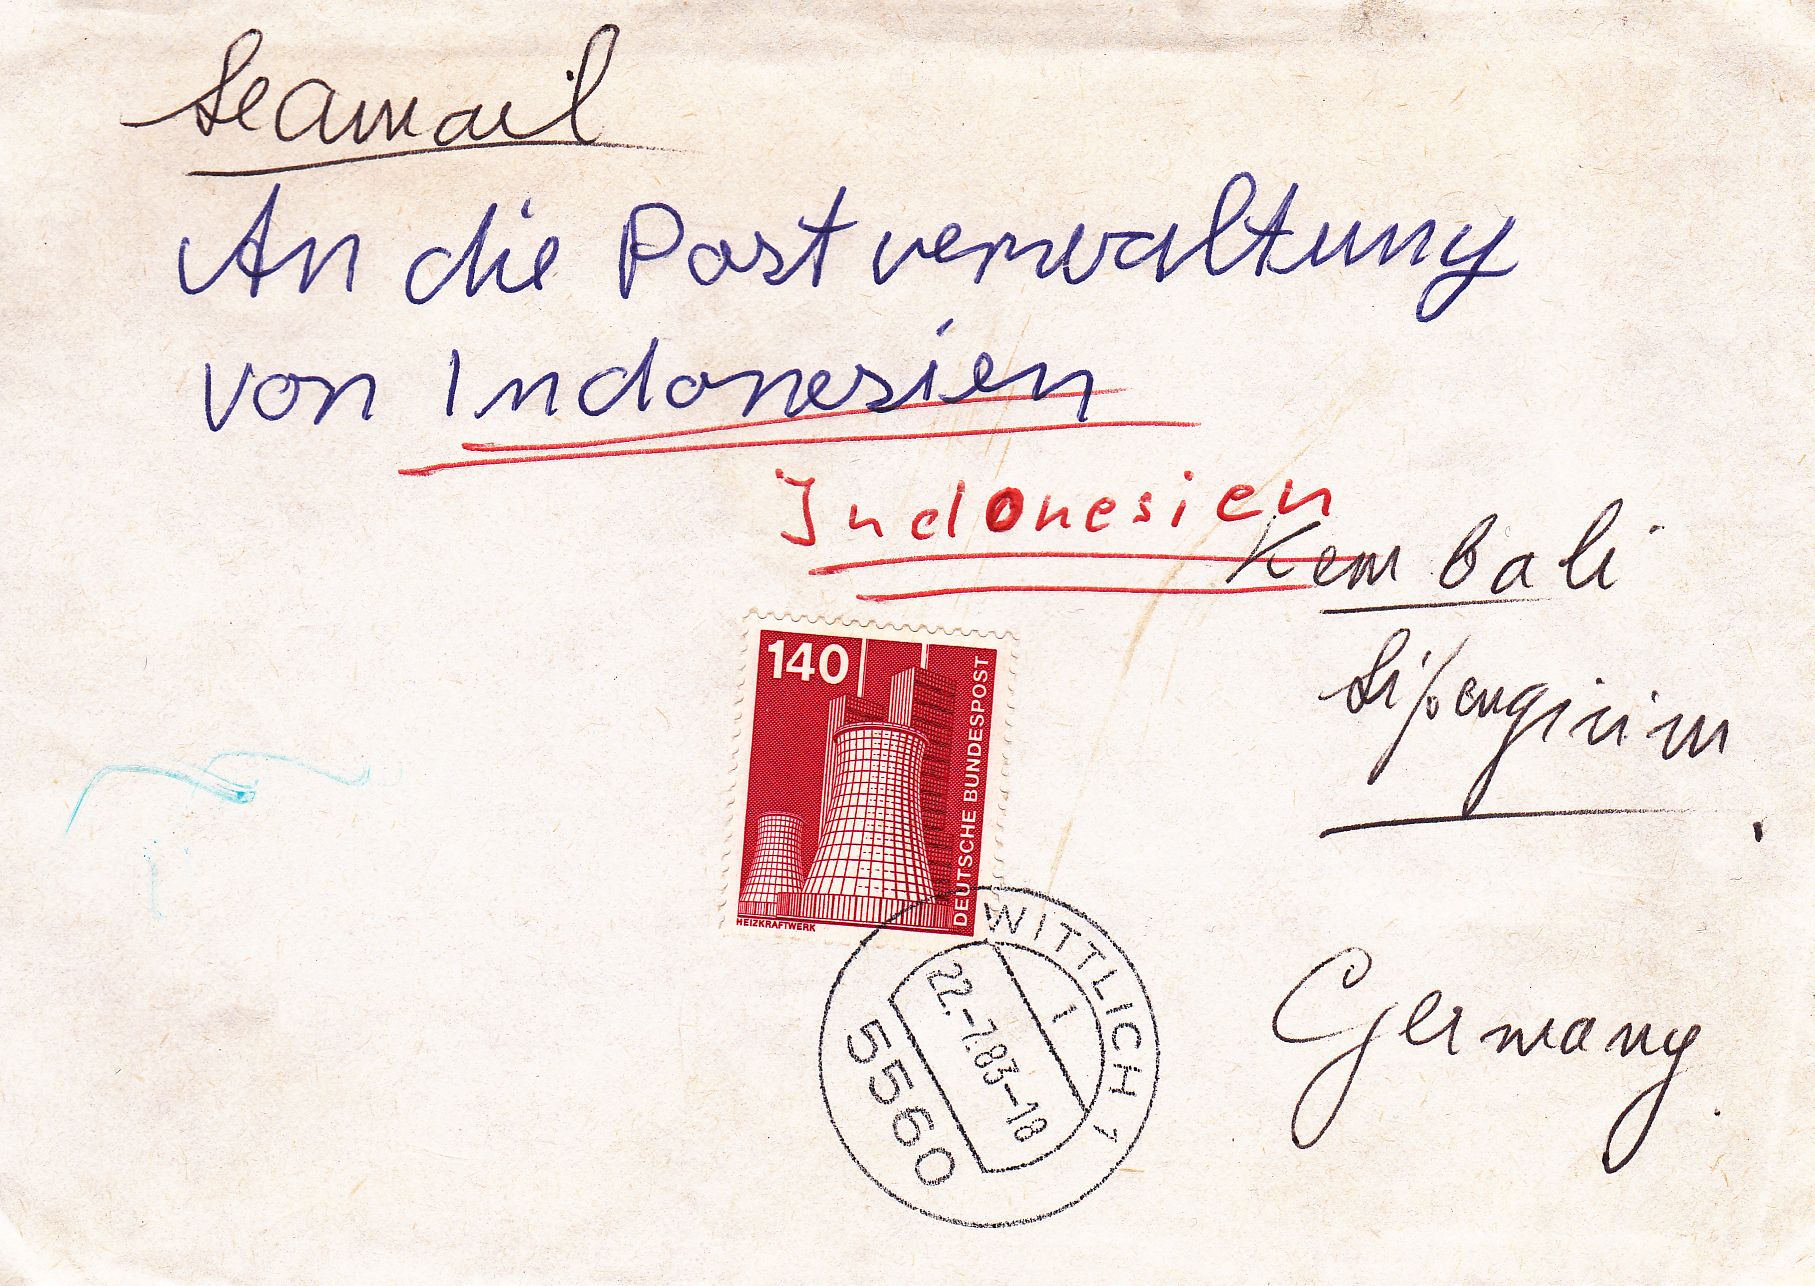 Seamail
An die Postverwaltung
von Indonesien
Indonesien
Kembali
Si/pengirim
Germany
140
DEUTSCHE BUNDESPOST
HEIZKRAFTWERK
WITTLICH 1
1
22.-7.83-18
5560